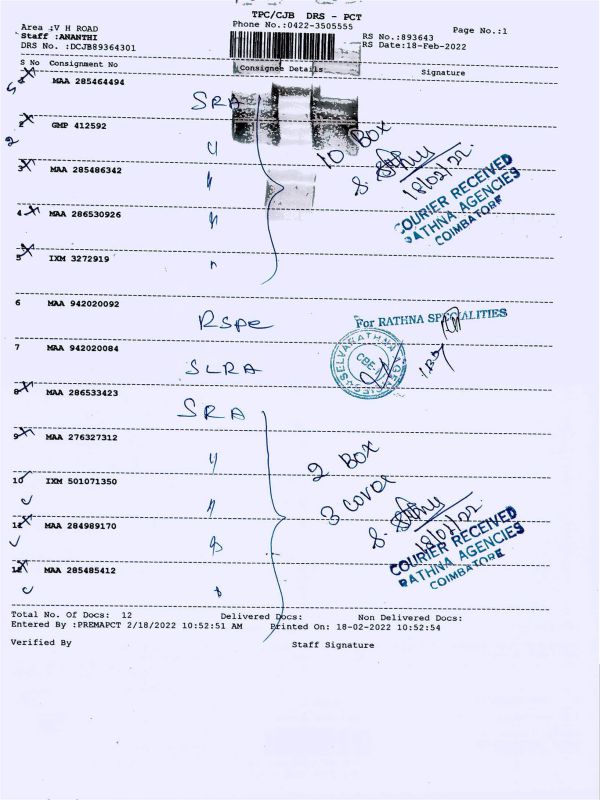 TPC/CJB DRS - PCT
Area :V H ROAD Phone No.:0422-3505555 Page No.:1
Staff :ANANTHI RS No.:893643
DRS No. :DCJB89364301 RS Date:18-Feb-2022
S No Consignment No Consignee Details Signature
MAA 285464494
SRA
2 GMP 412592
10 Box
3 MAA 285486342
18/02/22
COURIER RECEIVED
RATHNA AGENCIES
COIMBATORE
4 MAA 286530926
5 IXM 3272919
6 MAA 942020092
Rspe
For RATHNA SPECIALITIES
7 MAA 942020084
SLRA
SELVARATHNA AGENCIES
CBE
8 MAA 286533423
SRA
9 MAA 276327312
2 Box
10 IXM 501071350
3 cover
11 MAA 284989170
18/02/22
COURIER RECEIVED
RATHNA AGENCIES
COIMBATORE
12 MAA 285485412
Total No. Of Docs: 12 Delivered Docs: Non Delivered Docs:
Entered By :PREMAPCT 2/18/2022 10:52:51 AM Printed On: 18-02-2022 10:52:54
Verified By Staff Signature